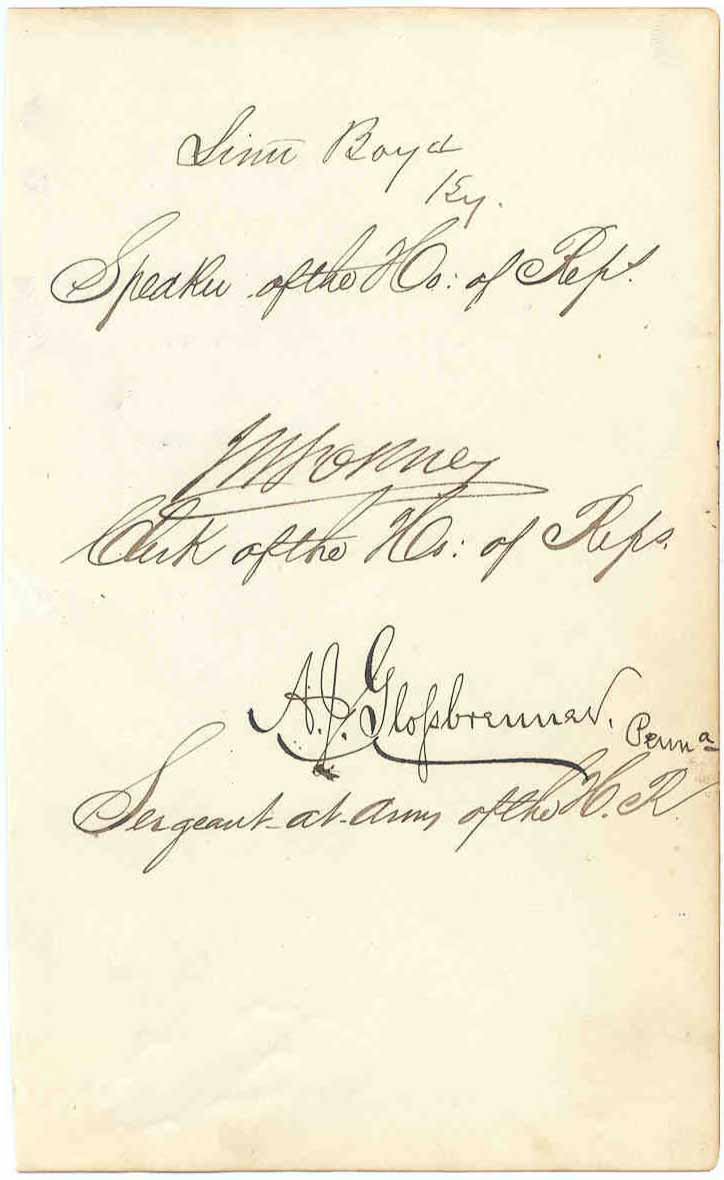 Linn Boyd
Ky.
Speaker of the Ho: of Reps.
JW Forney
Clerk of the Ho: of Reps.
A. J. Glossbrenner. Penna
Sergeant-at-arms of the H. R.